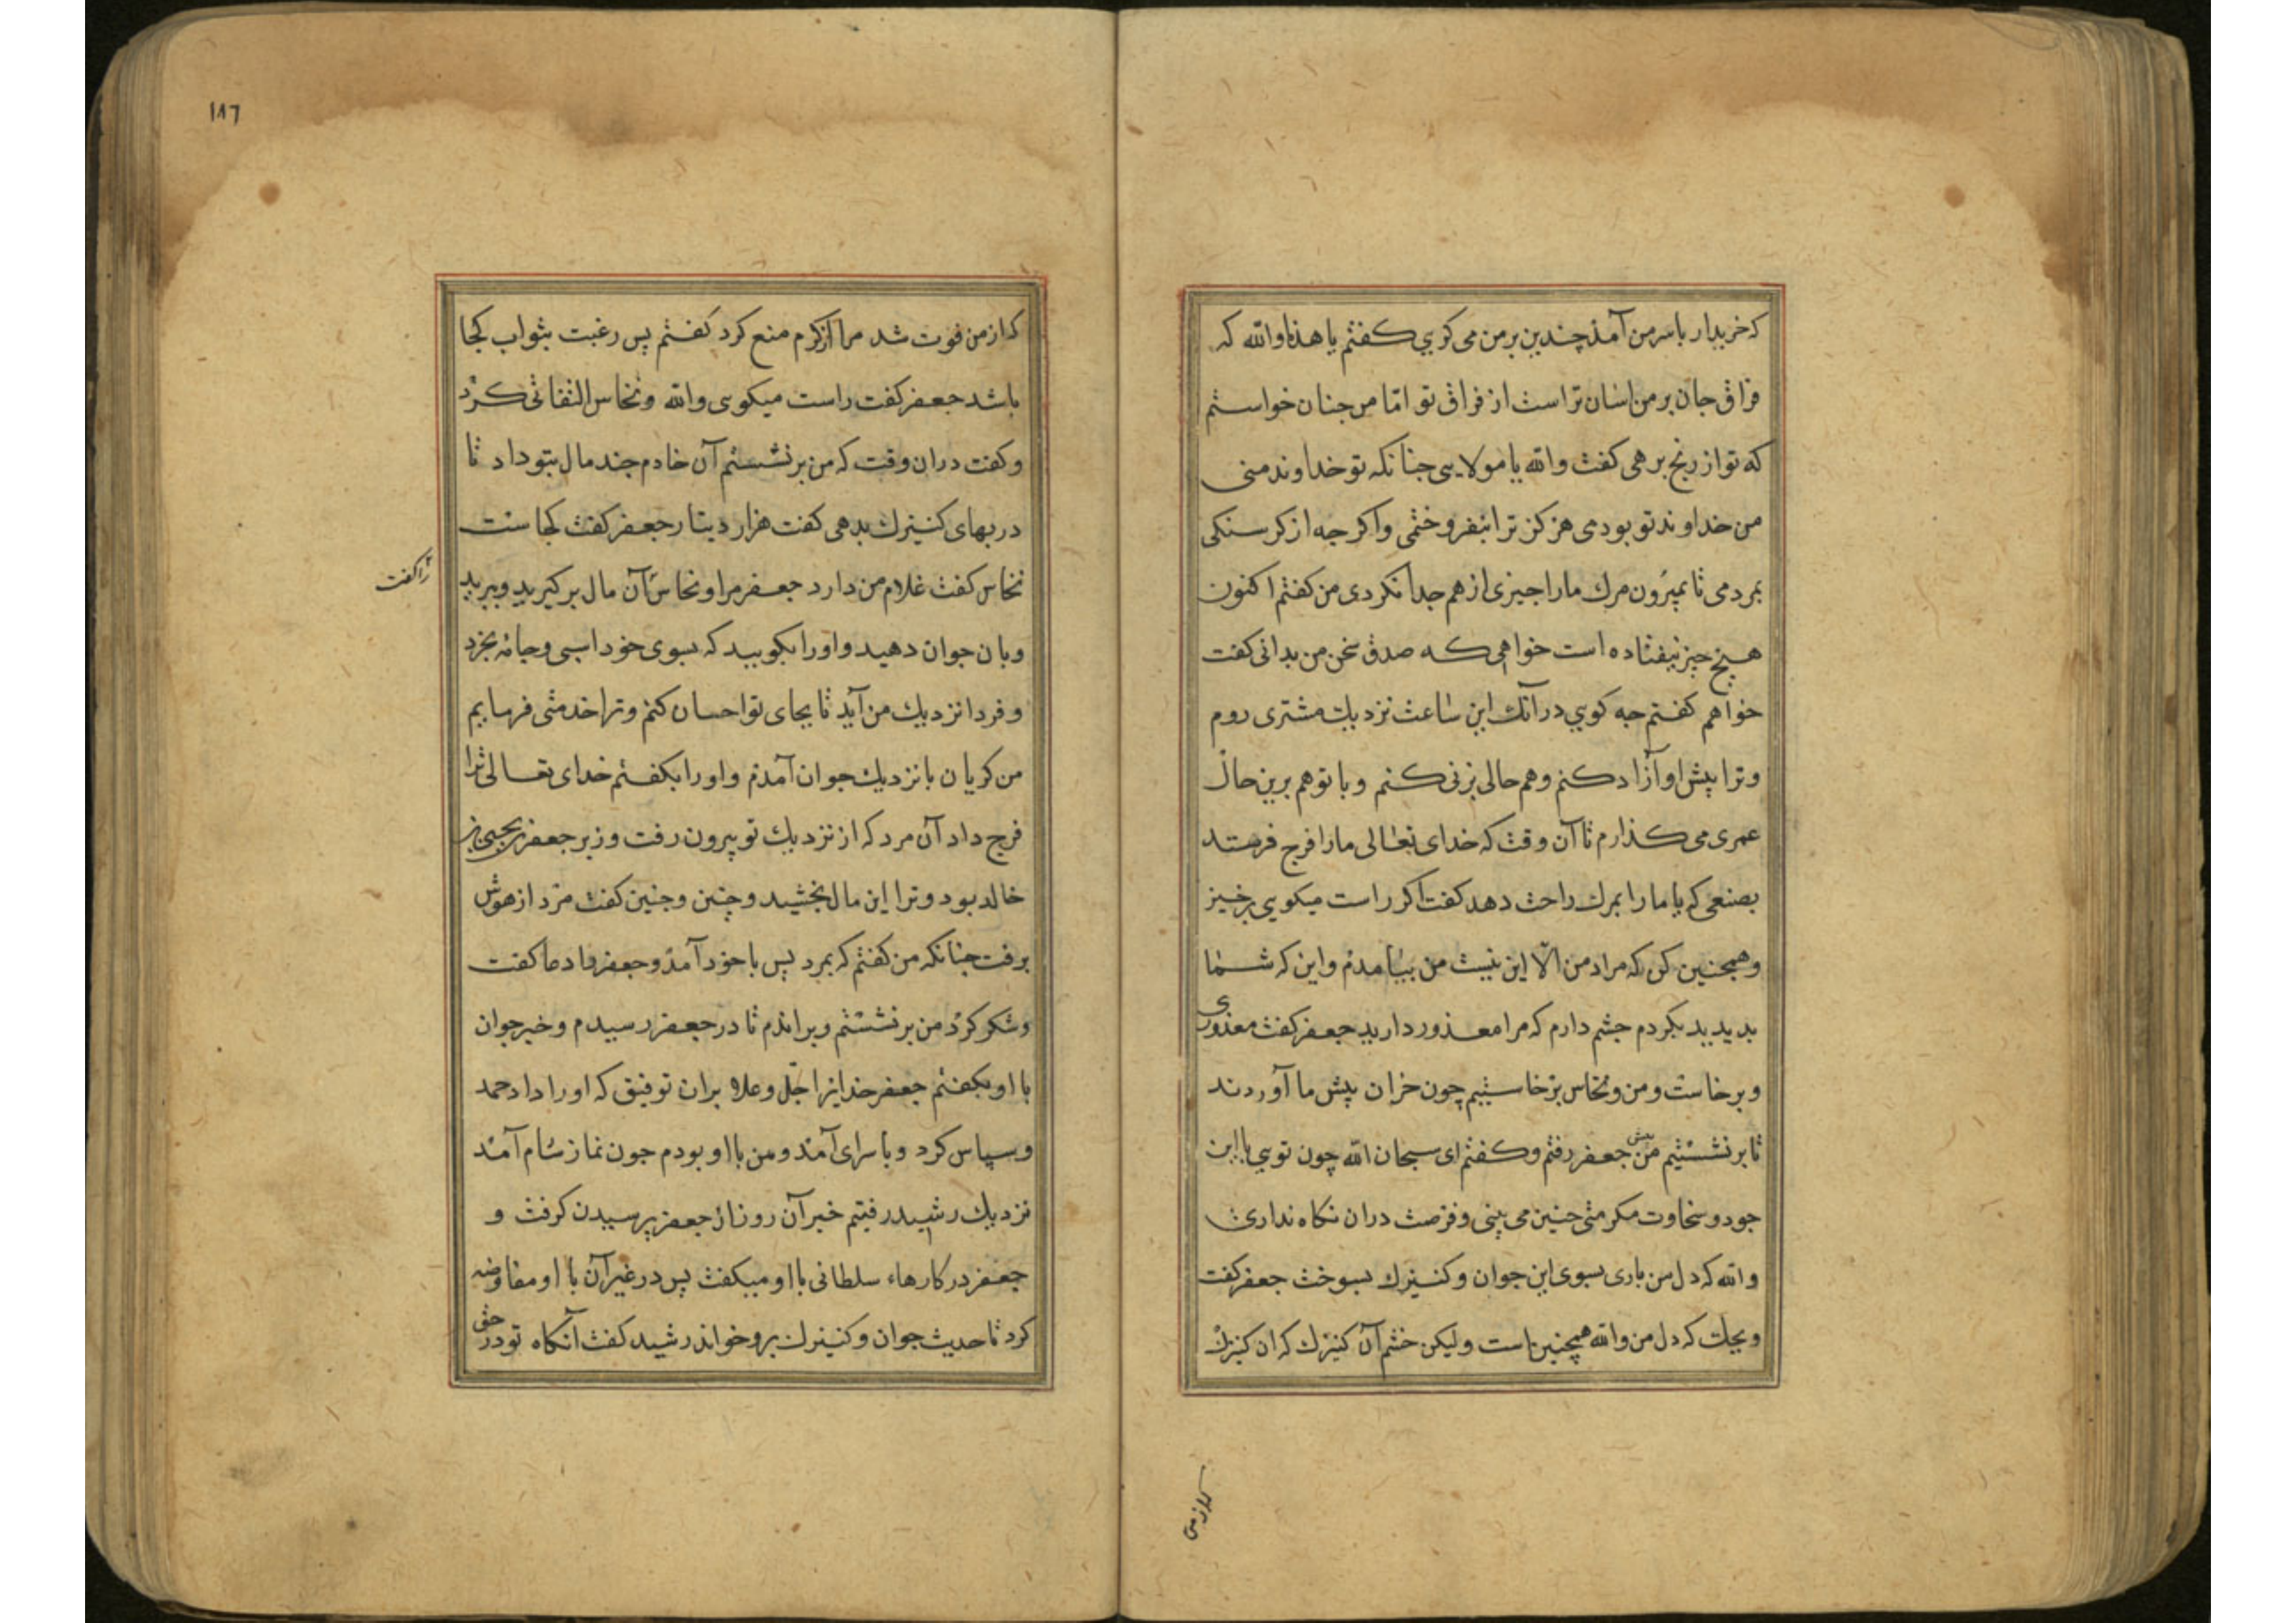 که خریدار باسر من آمذ چندین بر من می کریي کفتم یا هذا والله که
فراق جان بر من اسان تر است از فراق تو امّا من جنان خواستم
که تو از رنج برهی کفت والله یا مولایی جنانکه تو خداوند منی
من خداوند تو بودمی هرکز ترا نفروختمی واکر جه از کرسنکی
بمردمی تا بیرون مرك ما را جیزی از هم جدا نکردی من کفتم اکنون
هیچ جیز نیفتاده است خواهی که صدق سخن من بدانی کفت
خواهم کفتم جه کویي در آنك این ساعت نزدیك مشتری روم
وترا پیش او آزاد کنم وهم حالی بزنی کنم وبا تو هم برین حال
عمری می کذارم تا آن وقت که خدای تعالی ما را فرج فرستد
بصنعی که یا ما را بمرك راحت دهد کفت اکر راست میکویي برخیز
وهمجنین کن که مراد من الّا این نیست من بیامدم واین که شما
بدیدید بکردم جشم دارم که مرا معذور دارید جعفر کفت معذوری
وبرخاست ومن ونخاس برخاستیم چون خران پیش ما آوردند
تا برنشستیم من پیش جعفر رفتم وکفتم ای سبحان الله چون تویي با این
جود وسخاوت مکرمتی جنین می بینی وفرصت دران نکاه نداری
والله که دل من باری بسوی این جوان وکنیزك بسوخت جعفر کفت
ویحك که دل من والله همچنین است ولیکن خشم آن کنیزك که ان کنیزك
که از من
۱۸٦
که از من فوت شد مرا از کرم منع کرد کفتم پس رغبت بثواب کجا
باشد جعفر کفت راست میکوی والله ونخاس التفاتی کرد
وکفت دران وقت که من برنشستم آن خادم جند مال بتو داد تا
در بهای کنیزك بدهی کفت هزار دینار جعفر کفت کجاست
نخاس کفت غلام من دارد جعفر مرا ونخاس آن مال برکیرید وببرید
را کفت
وبان جوان دهید واورا بکویید که بسوی خود اسبی وجامه بخرد
وفردا نزدیك من آید تا بجای تو احسان کنم وترا خدمتی فرمایم
من کریان بانزدیك جوان آمذم واورا بکفتم خدای تعالی ترا
فرج داد آن مرد که از نزدیك تو بیرون رفت وزیر جعفر بن یحیی بن
خالد بود وترا این مال بخشید وچنین وجنین کفت مرد از هوش
برفت جنانکه من کفتم که بمرد پس باخوذ آمذ وجعفر را دعا کفت
وشکر کرد من برنشستم وبراندم تا در جعفر رسیدم وخبر جوان
با او بکفتم جعفر خدایرا جلّ وعلا بران توفیق که اورا داد حمد
وسپاس کرد وباسرای آمذ ومن با او بودم جون نماز شام آمد
نزدیك رشید رفتیم خبر آن روز از جعفر پرسیدن کرفت و
جعفر در کارهاء سلطانی با او میکفت پس در غیر آن با او مفاوضه
کرد تا حدیث جوان وکنیزك برو خواند رشید کفت آنکاه تو در حق